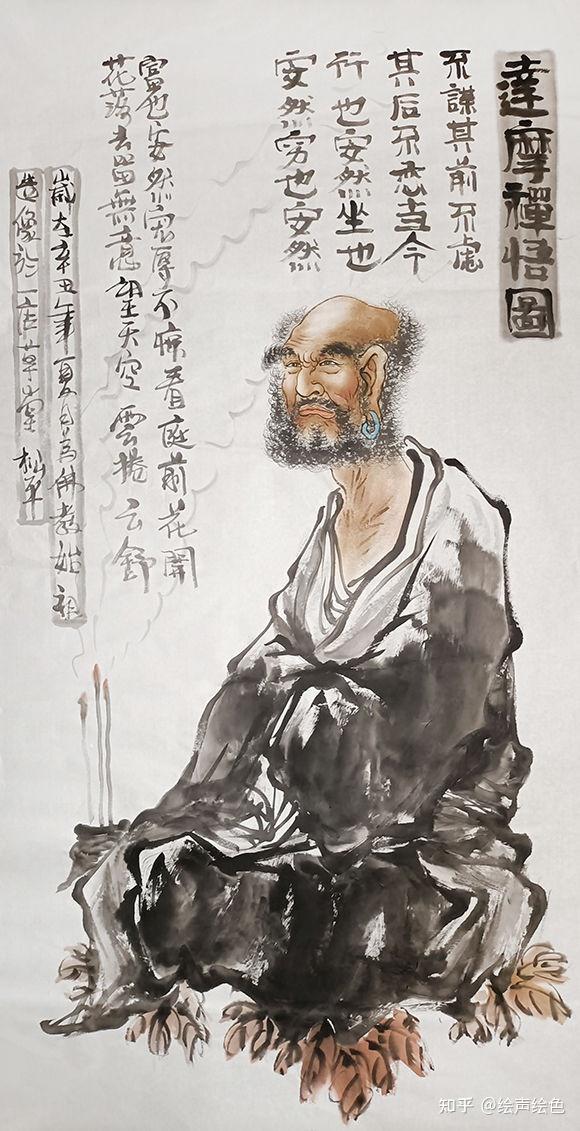 達摩禪悟圖
不謀其前不慮
其后不恋当今
行也安然坐也
安然穷也安然
富也安然宠辱不惊看庭前花開
花落去留無意望天空雲捲云舒
歲在辛丑年夏月為佛教始祖
造像於一草堂
知乎 @绘声绘色